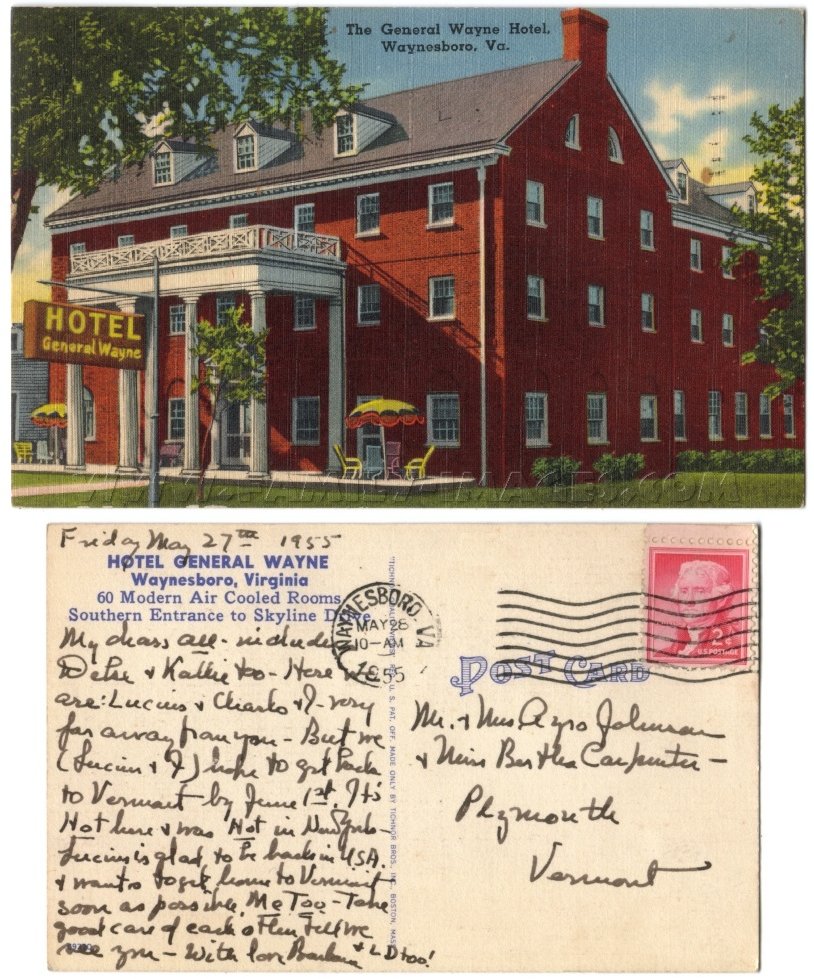 The General Wayne Hotel,
Waynesboro, Va.
HOTEL
General Wayne
WWW.2-FAMILY-IMAGES.COM
Friday May 27th 1955
HOTEL GENERAL WAYNE
Waynesboro, Virginia
60 Modern Air Cooled Rooms
Southern Entrance to Skyline Drive
My dears all - including
& Kathie too - Here we
are: Lucius & Charles & I - very
far away from you - But we
(Lucius & I) hope to get back
to Vermont by June 1st. It's
Hot here & was Hot in New York -
Lucius is glad to be back in USA.
& wants to get home to Vermont
soon as possible. Me Too - Take
good care of each other till we
see you - With love Barbara & L D too!
WAYNESBORO, VA
MAY 28
10 - AM
1955
POST CARD
2¢
U.S. POSTAGE
Mr. & Mrs Azro Johnson
& Miss Bertha Carpenter -
Plymouth
Vermont
MADE ONLY BY TICHNOR BROS., INC., BOSTON, MASS.